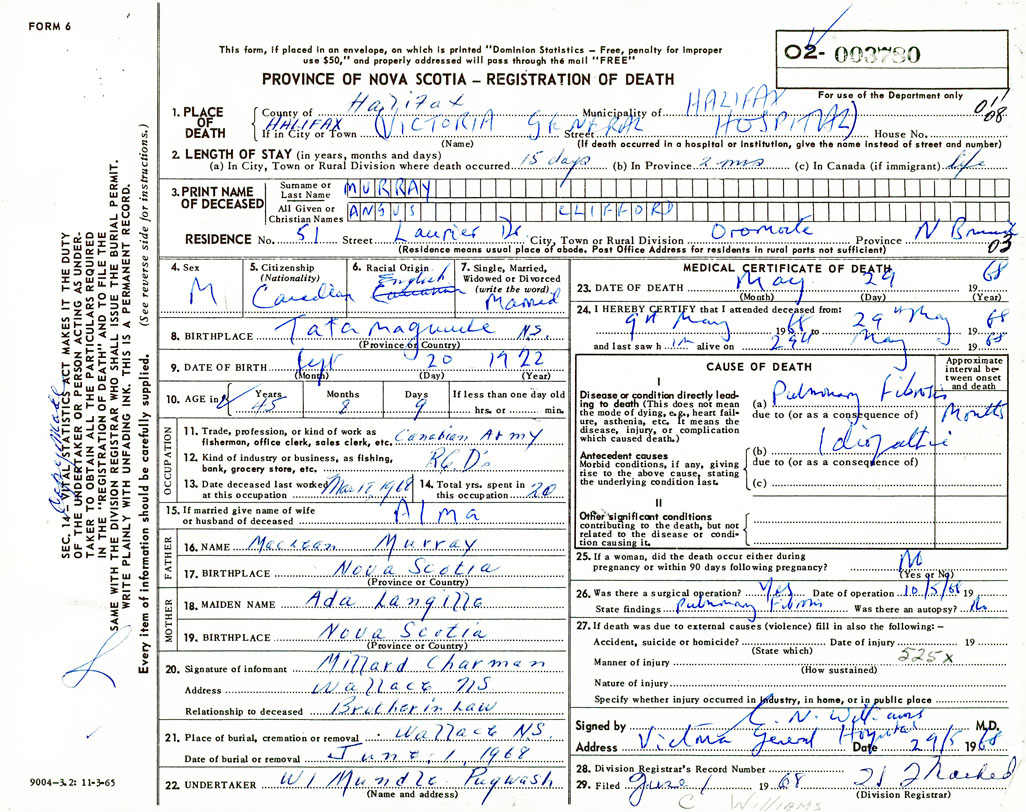 FORM 6
This form, if placed in an envelope, on which is printed "Dominion Statistics – Free, penalty for improper
use $50," and properly addressed will pass through the mail "FREE"
02- 003780
PROVINCE OF NOVA SCOTIA – REGISTRATION OF DEATH
For use of the Department only
1. PLACE OF DEATH
County of Halifax Municipality of HALIFAX
HALIFAX (VICTORIA GENERAL HOSPITAL)
If in City or Town Street House No.
(Name) (If death occurred in a hospital or institution, give the name instead of street and number)
2. LENGTH OF STAY (in years, months and days)
(a) In City, Town or Rural Division where death occurred 15 days (b) In Province 2 mos (c) In Canada (if immigrant) life
3. PRINT NAME OF DECEASED
Surname or Last Name MURRAY
All Given or Christian Names ANGUS CLIFFORD
RESIDENCE No. 51 Street Laurier Dr City, Town or Rural Division Oromocto Province N Bruns
03
(Residence means usual place of abode. Post Office Address for residents in rural parts not sufficient)
4. Sex M
5. Citizenship (Nationality) Canadian
6. Racial Origin English
7. Single, Married, Widowed or Divorced (write the word) Married
8. BIRTHPLACE Tatamagouche N.S.
(Province or Country)
9. DATE OF BIRTH Sept 20 1922
(Month) (Day) (Year)
10. AGE in Years 45 Months 8 Days 9 If less than one day old
hrs. or min.
OCCUPATION
11. Trade, profession, or kind of work as
fisherman, office clerk, sales clerk, etc. Canadian Army
12. Kind of industry or business, as fishing,
bank, grocery store, etc. RCD's
13. Date deceased last worked at this occupation Mar 18, 1968
14. Total yrs. spent in this occupation 20
15. If married give name of wife
or husband of deceased Alma
FATHER
16. NAME MacLean Murray
17. BIRTHPLACE Nova Scotia
(Province or Country)
MOTHER
18. MAIDEN NAME Ada Langille
19. BIRTHPLACE Nova Scotia
(Province or Country)
20. Signature of informant Millard Charman
Address Wallace NS
Relationship to deceased Brother in Law
21. Place of burial, cremation or removal Wallace NS.
Date of burial or removal June 1, 1968
22. UNDERTAKER W I Mundle Pugwash
(Name and address)
MEDICAL CERTIFICATE OF DEATH
23. DATE OF DEATH May 29 1968
(Month) (Day) (Year)
24. I HEREBY CERTIFY that I attended deceased from:
9th May 1968 to 29th May 1968
and last saw him alive on 29th May 1968
CAUSE OF DEATH
Approximate interval between onset and death
I
Disease or condition directly leading to death (This does not mean the mode of dying, e.g., heart failure, asthenia, etc. It means the disease, injury, or complication which caused death.)
(a) Pulmonary Fibrosis Months
due to (or as a consequence of)
Antecedent causes
Morbid conditions, if any, giving rise to the above cause, stating the underlying condition last.
(b) Idiopathic
due to (or as a consequence of)
(c)
II
Other significant conditions
contributing to the death, but not related to the disease or condition causing it.
25. If a woman, did the death occur either during
pregnancy or within 90 days following pregnancy? No
(Yes or No)
26. Was there a surgical operation? Yes Date of operation 10/5/68 19
State findings Pulmonary Fibrosis Was there an autopsy? No
27. If death was due to external causes (violence) fill in also the following: –
Accident, suicide or homicide? Date of injury 19
(State which)
525x
Manner of injury
(How sustained)
Nature of injury
Specify whether injury occurred in industry, in home, or in public place
Signed by C. N. Williams M.D.
Address Victoria General Hospital Date 29/5 1968
28. Division Registrar's Record Number
29. Filed June 1 1968
(Division Registrar)
C WILLIAMS
SEC. 14 – VITAL STATISTICS ACT MAKES IT THE DUTY
OF THE UNDERTAKER OR PERSON ACTING AS UNDER-
TAKER TO OBTAIN ALL THE PARTICULARS REQUIRED
IN THE "REGISTRATION OF DEATH" AND TO FILE THE
SAME WITH THE DIVISION REGISTRAR WHO SHALL ISSUE THE BURIAL PERMIT.
WRITE PLAINLY WITH UNFADING INK. THIS IS A PERMANENT RECORD.
Every item of information should be carefully supplied. (See reverse side for instructions.)
9004-3.2: 11-3-65